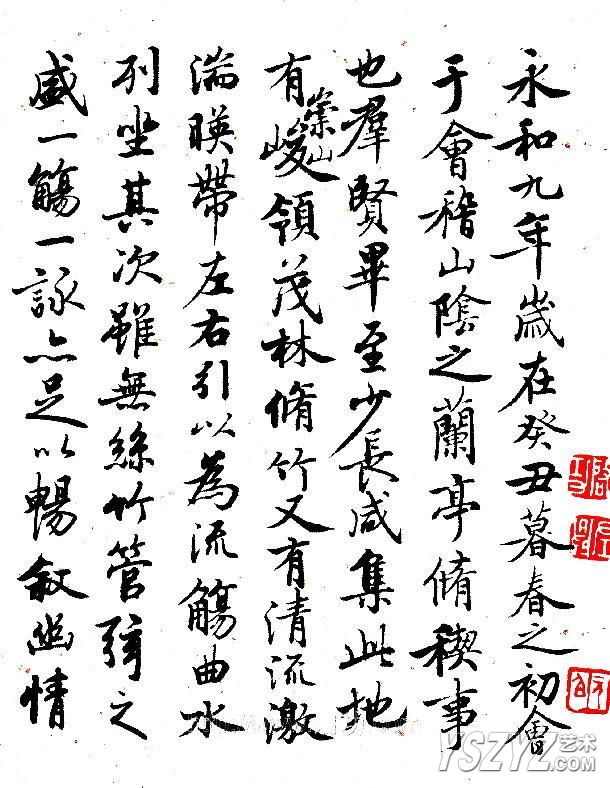 永和九年歲在癸丑暮春之初會
于會稽山陰之蘭亭脩稧事
也羣賢畢至少長咸集此地
有崇山峻領茂林脩竹又有清流激
湍暎帶左右引以為流觴曲水
列坐其次雖無絲竹管弦之
盛一觴一詠亦足以暢叙幽情
YSZYZ艺术.COM